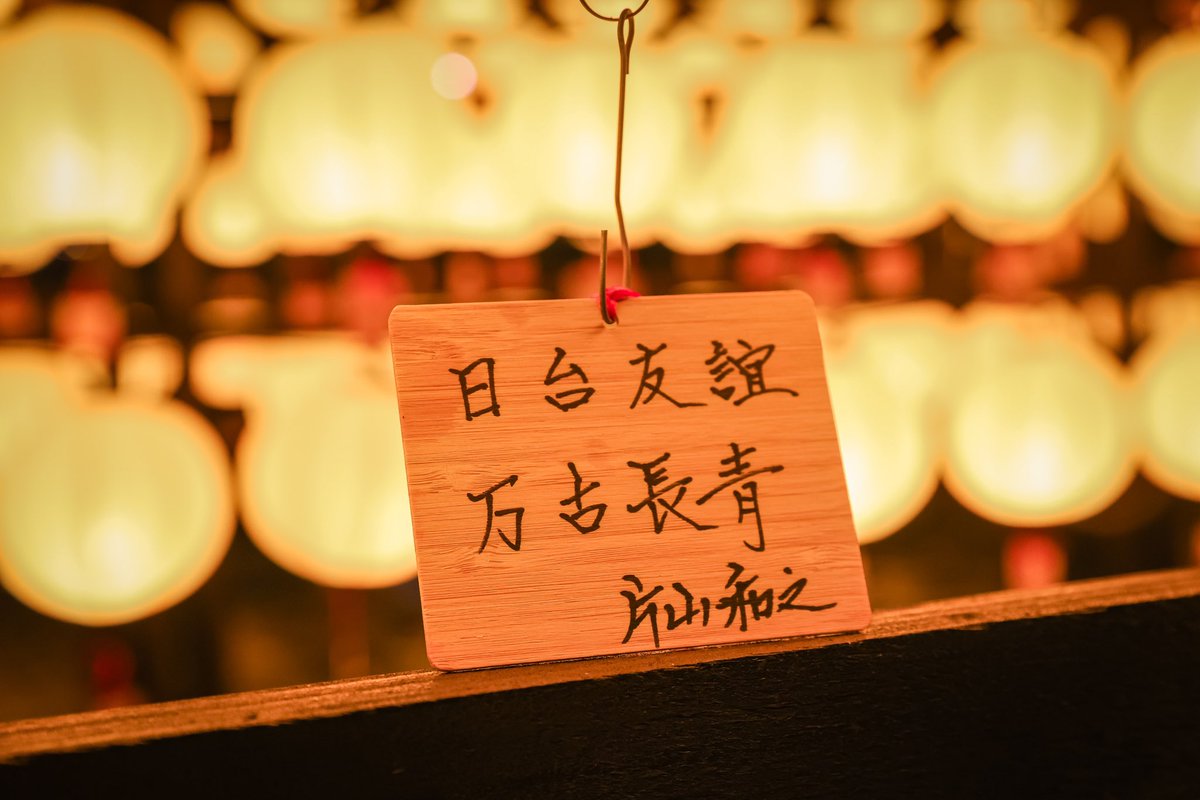 日台友誼
万古長青
片山和之